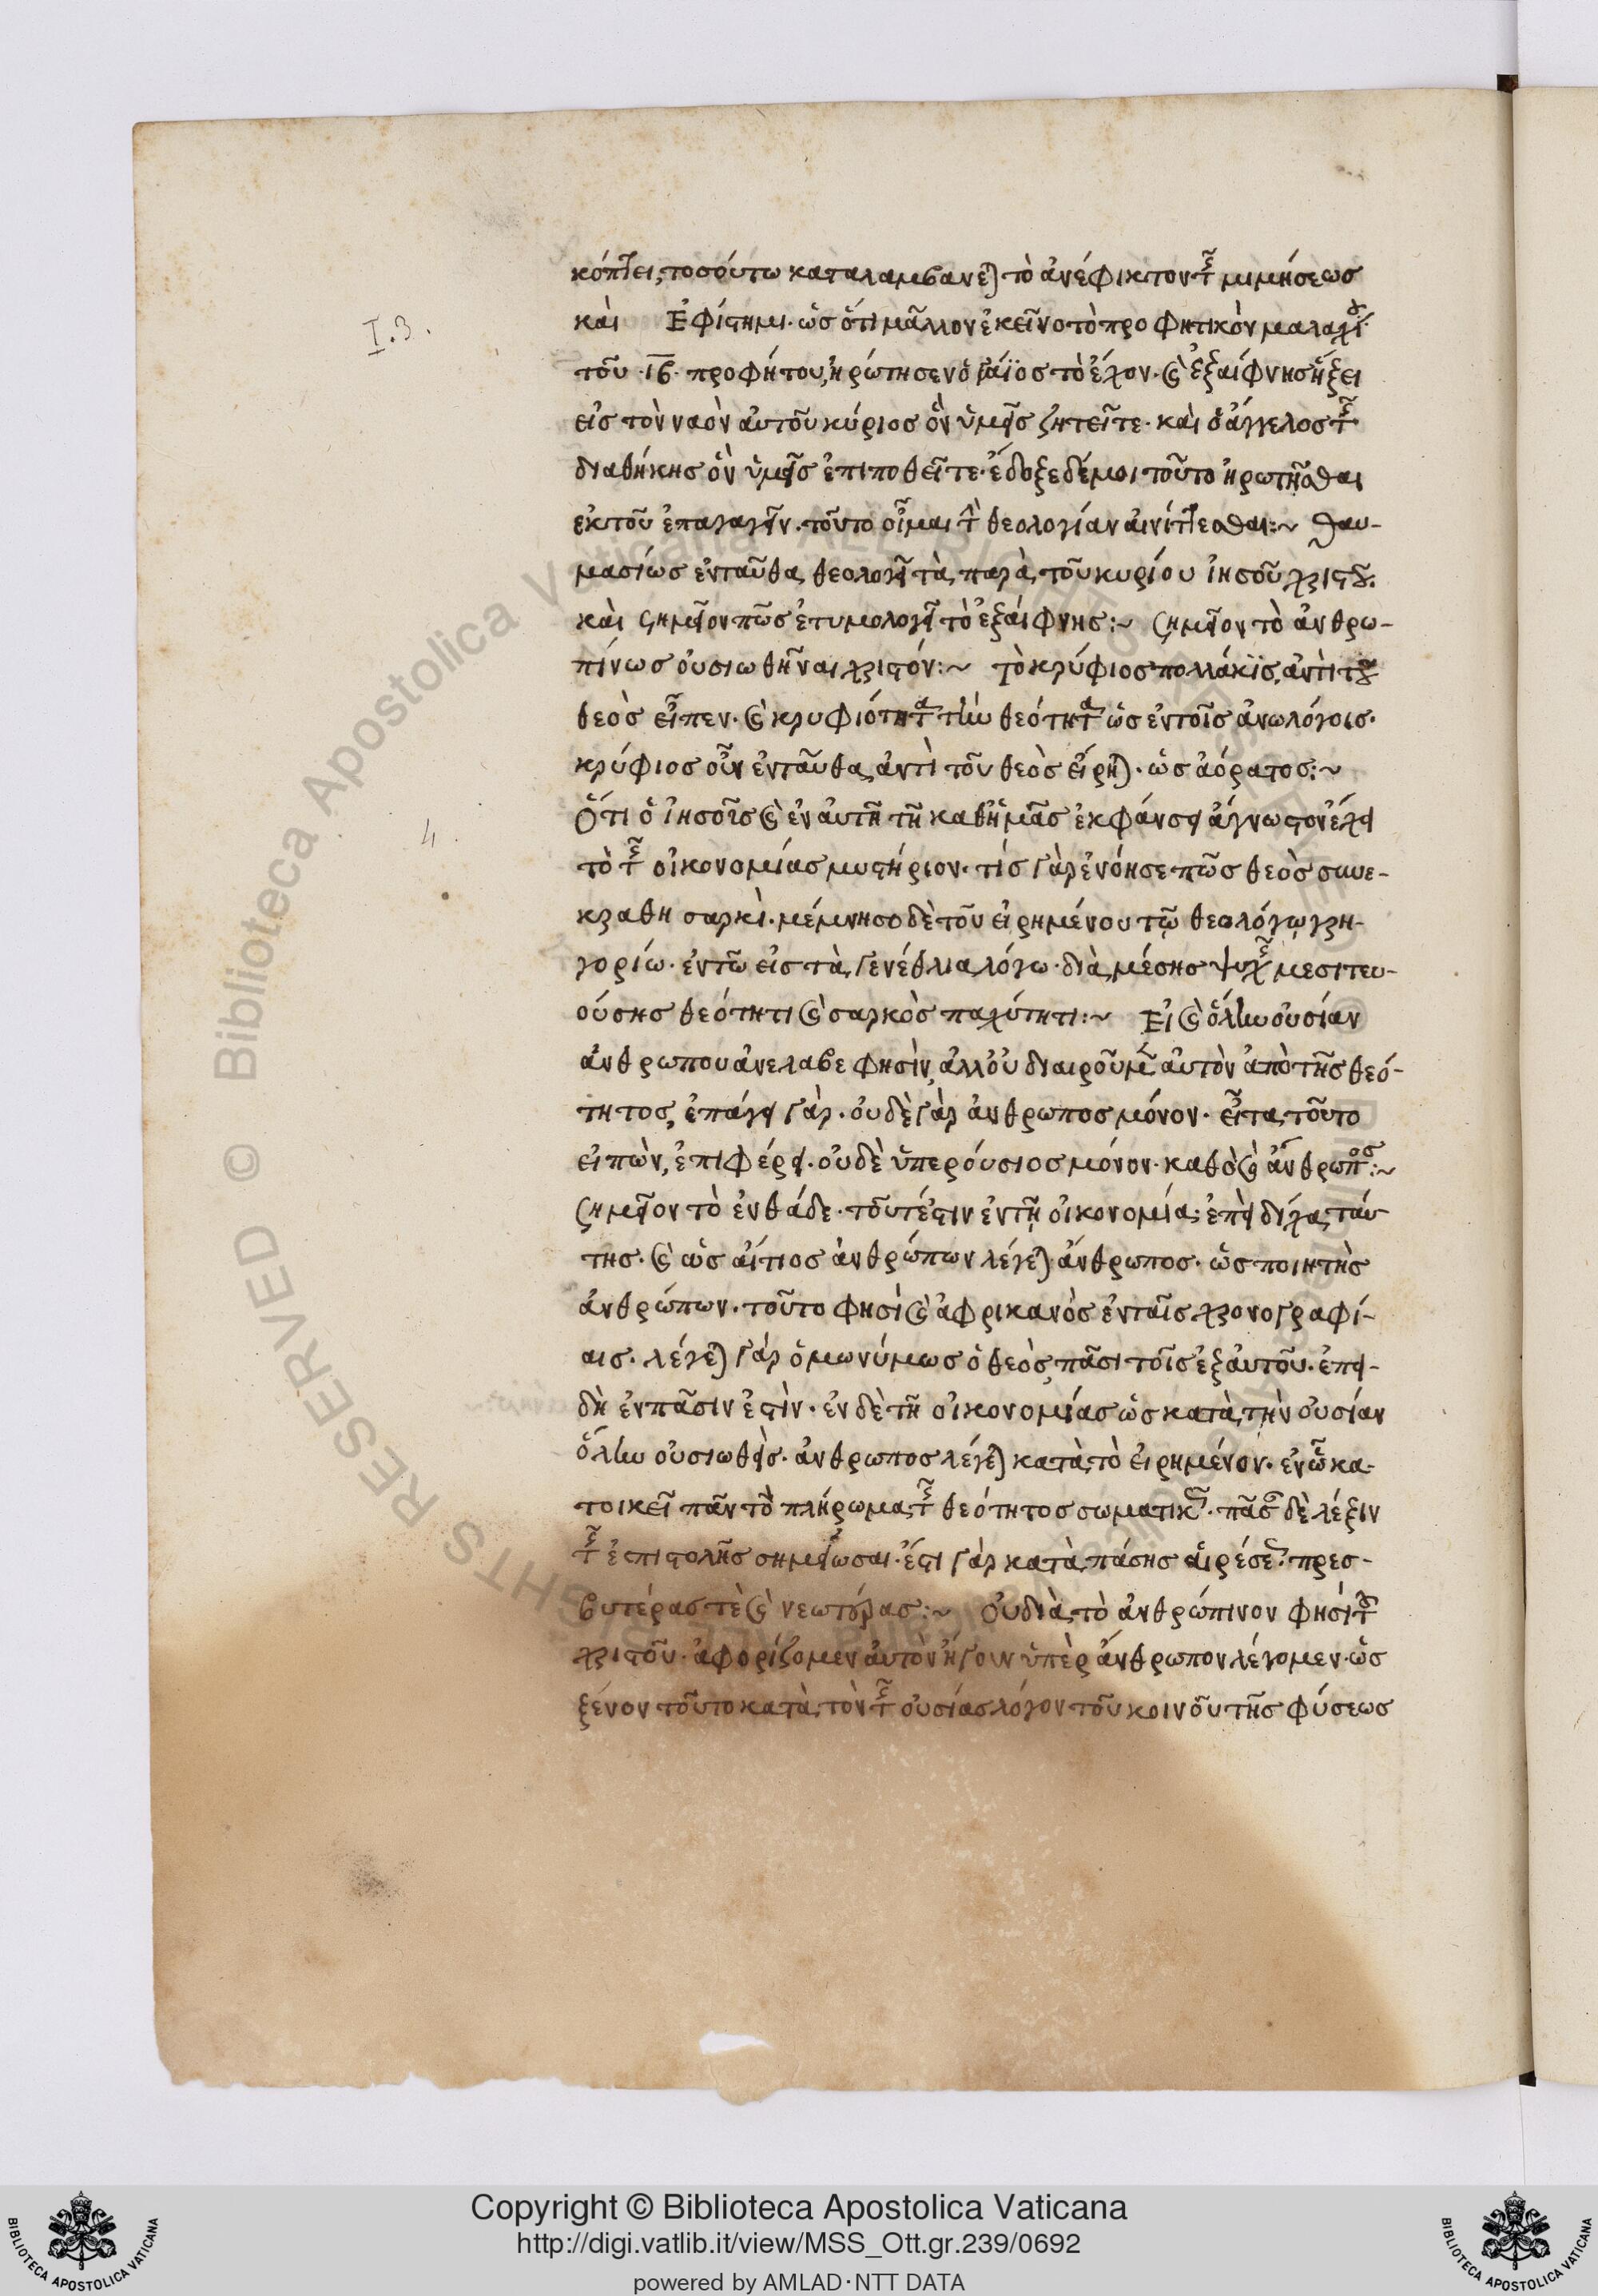 κόπτει, τοσούτω καταλαμβάνεται τὸ ἀνέφικτον τῆς μιμήσεως
I.3.
καὶ Ἐφίστημι. ὡς ὅτι μᾶλλον ἐκεῖνο τὸ προφητικὸν μαλαχίου
τοῦ ιβ προφήτου, ἠρώτησεν ὁ γάϊος τὸ ἔχον. καὶ ἐξαίφνης ἥξει
εἰς τὸν ναὸν αὐτοῦ κύριος ὃν ὑμεῖς ζητεῖτε. καὶ ὁ ἄγγελος τῆς
διαθήκης ὃν ὑμεῖς ἐπιποθεῖτε. ἔδοξε δέ μοι τοῦτο ἠρωτῆσθαι
ἐκ τοῦ ἐπαγαγεῖν. τοῦτο οἶμαι τὴν θεολογίαν αἰνίττεσθαι:~ Θαυ-
μασίως ἐνταῦθα θεολογεῖ τὰ παρὰ τοῦ κυρίου ἰησοῦ χριστοῦ.
καὶ σημεῖον πῶς ἐτυμολογεῖ τὸ ἐξαίφνης:~ Σημεῖον τὸ ἀνθρω-
πίνως οὐσιωθῆναι χριστόν:~ Τὸ κρύφιος πολλάκις, ἀντὶ τοῦ
θεὸς εἶπεν. καὶ κρυφιότητα τὴν θεότητα ὡς ἐν τοῖς ἄνω λόγοις.
κρύφιος οὖν ἐνταῦθα ἀντὶ τοῦ θεὸς εἴρηται. ὡς ἀόρατος:~
4.
Ὅτι ὁ ἰησοῦς καὶ ἐν αὐτῇ τῇ καθ' ἡμᾶς ἐκφάνσει ἄγνωστον ἔχει
τὸ τῆς οἰκονομίας μυστήριον. τίς γὰρ ἐνόησε πῶς θεὸς συνε-
κράθη σαρκὶ. μέμνησο δὲ τοῦ εἰρημένου τῷ θεολόγῳ γρη-
γορίω. ἐν τῶ εἰς τὰ γενέθλια λόγω. διὰ μέσης ψυχῆς μεσιτευ-
ούσης θεότητι καὶ σαρκὸς παχύτητι:~ Εἰ καὶ ὅλην οὐσίαν
ἀνθρώπου ἀνέλαβε φησὶν, ἀλλ' οὐ διαιροῦμεν αὐτὸν ἀπὸ τῆς θεό-
τητος, ἐπάγει γὰρ. οὐδὲ γὰρ ἄνθρωπος μόνον. εἶτα τοῦτο
εἰπὼν, ἐπιφέρει. οὐδὲ ὑπερούσιος μόνον. καθὸ καὶ ἄνθρωπος:~
Σημεῖον τὸ ἐνθάδε. τουτέστιν ἐν τῇ οἰκονομία· ἐπεὶ δίχα ταύ-
της. καὶ ὡς αἴτιος ἀνθρώπων λέγεται ἄνθρωπος. ὡς ποιητὴς
ἀνθρώπων. τοῦτο φησὶ καὶ ἀφρικανὸς ἐν ταῖς χρονογραφί-
αις. λέγεται γὰρ ὁμωνύμως ὁ θεὸς πᾶσι τοῖς ἐξ αὐτοῦ. ἐπει-
δὴ ἐν πᾶσιν ἐστὶν. ἐν δὲ τῇ οἰκονομίας ὡς κατὰ τὴν οὐσίαν
ὅλην οὐσιωθεὶς. ἄνθρωπος λέγεται κατὰ τὸ εἰρημένον. ἐν ὧ κα-
τοικεῖ πᾶν τὸ πλήρωμα τῆς θεότητος σωματικῶς. πᾶσαν δὲ λέξιν
τῆς ἐπιστολῆς σημείωσαι. ἔστι γὰρ κατὰ πάσης αἱρέσεως. πρεσ-
βυτέρας τὲ καὶ νεωτέρας:~ Οὐ διὰ τὸ ἀνθρώπινον φησὶ τοῦ
χριστοῦ. ἀφορίζομεν αὐτὸν ἤγουν ὑπὲρ ἄνθρωπον λέγομεν. ὡς
ξένον τοῦτο κατὰ τὸν τῆς οὐσίας λόγον τοῦ κοινοῦ τῆς φύσεως
© Biblioteca Apostolica Vaticana ALL RIGHTS RESERVED
Copyright © Biblioteca Apostolica Vaticana
http://digi.vatlib.it/view/MSS_Ott.gr.239/0692
powered by AMLAD·NTT DATA
BIBLIOTECA APOSTOLICA VATICANA
BIBLIOTECA APOSTOLICA VATICANA